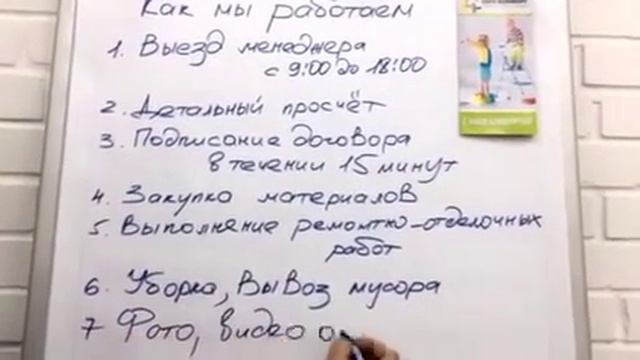 Как мы работаем
1. Выезд менеджера
с 9:00 до 18:00
2. Детальный просчёт
3. Подписание договора
в течении 15 минут
4. Закупка материалов
5. Выполнение ремонтно-отделочных
работ
6. Уборка, Вывоз мусора
7 Фото, видео о